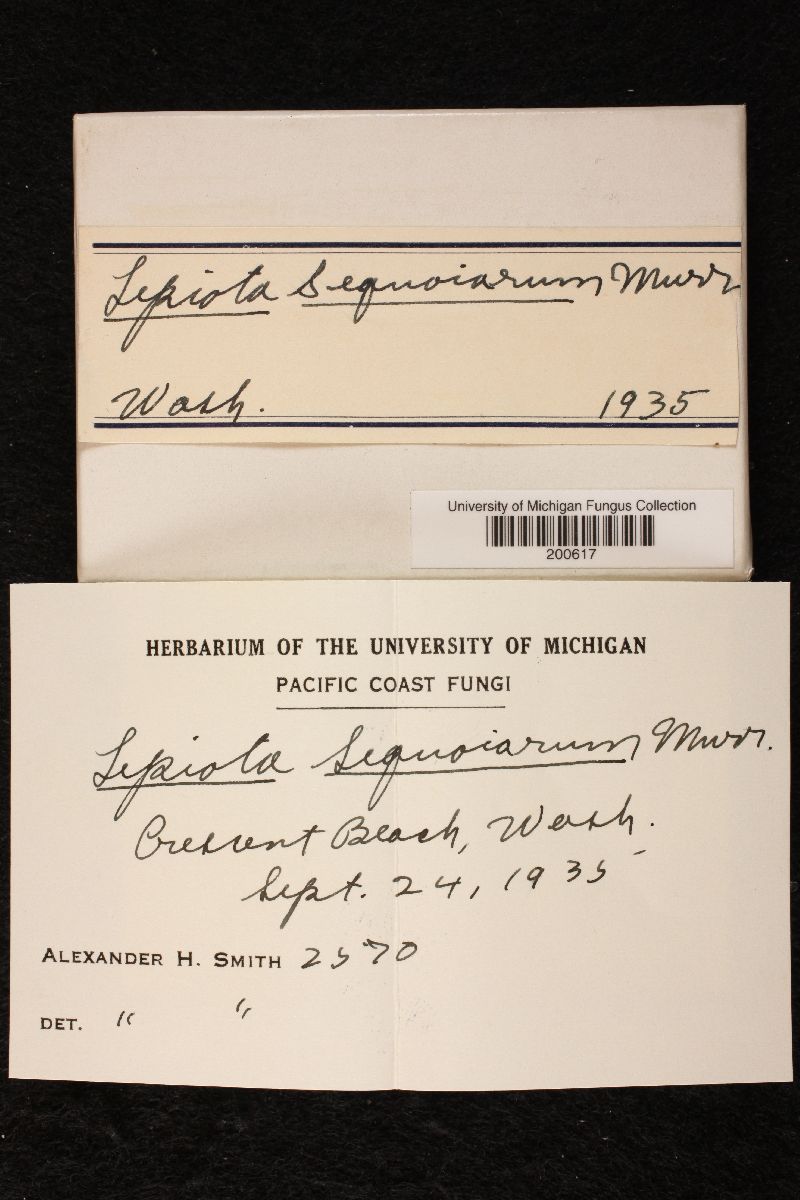 Lepiota Sequoiarum Murr
Wash. 1935
University of Michigan Fungus Collection
200617
HERBARIUM OF THE UNIVERSITY OF MICHIGAN
PACIFIC COAST FUNGI
Lepiota Sequoiarum Murr.
Crescent Beach, Wash.
Sept. 24, 1935
ALEXANDER H. SMITH 2570
DET. " "